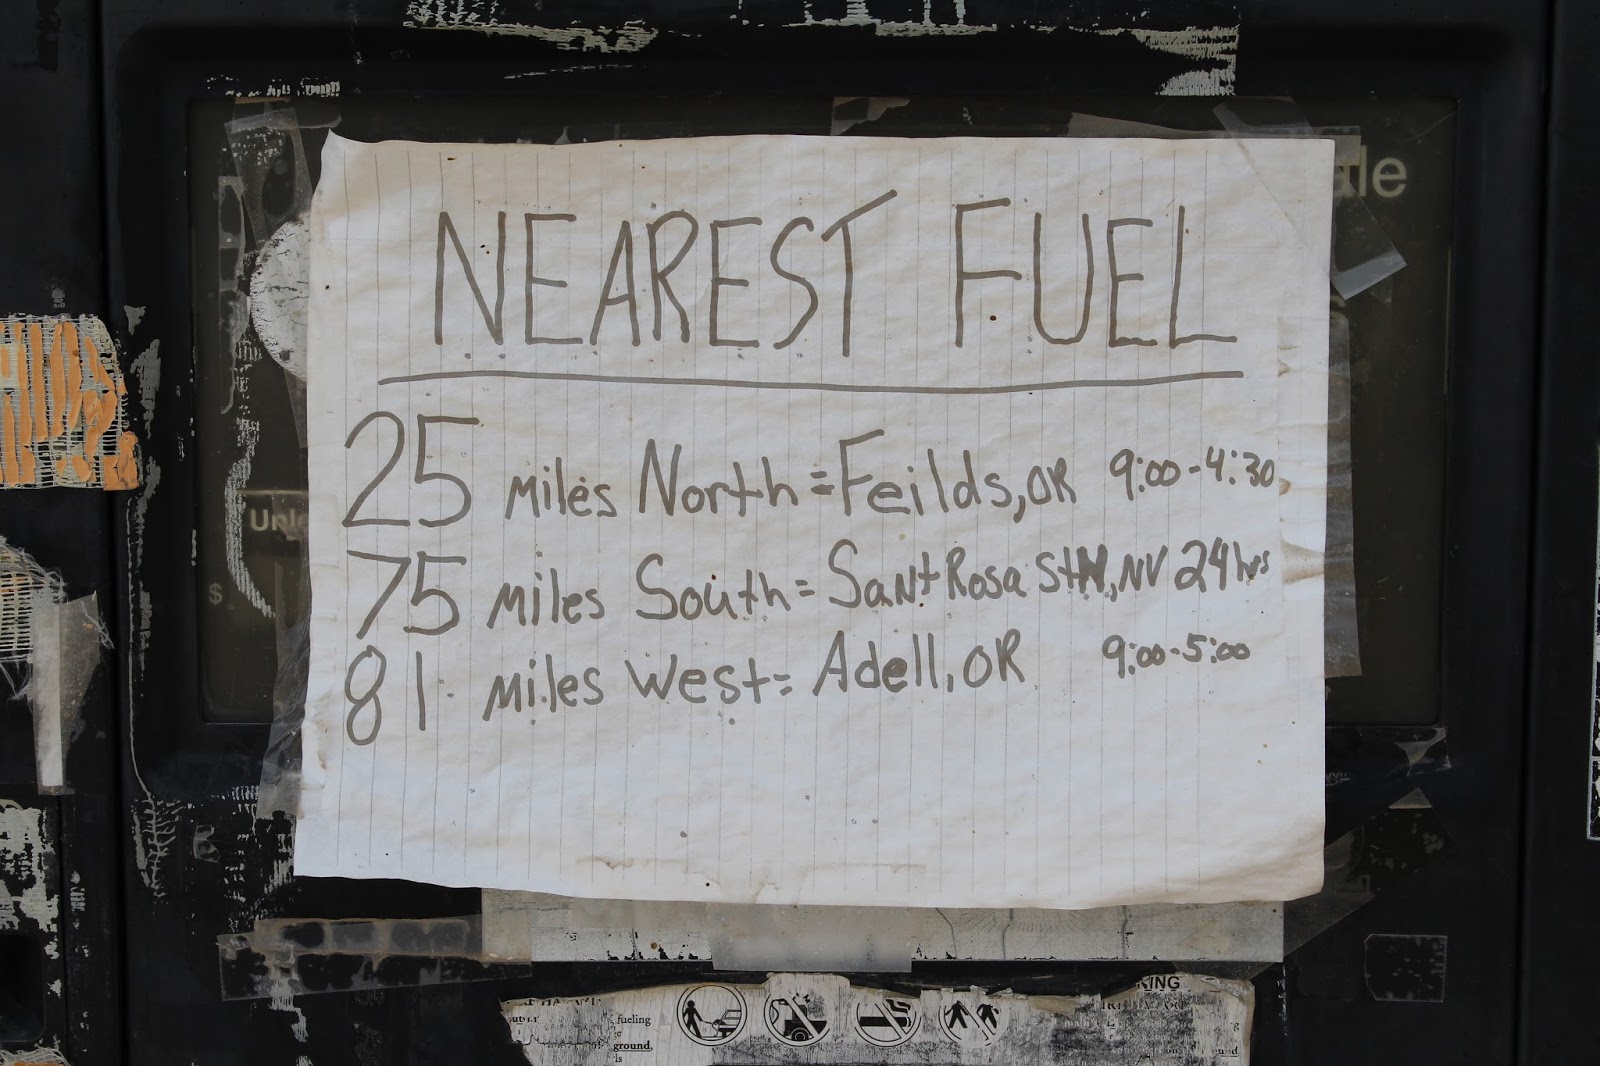 NEAREST FUEL
25 miles North = Feilds, OR 9:00-4:30
75 miles South = Sant Rosa Stn, NV 24 hrs
81 miles West = Adell, OR 9:00-5:00
fueling
ground,
is